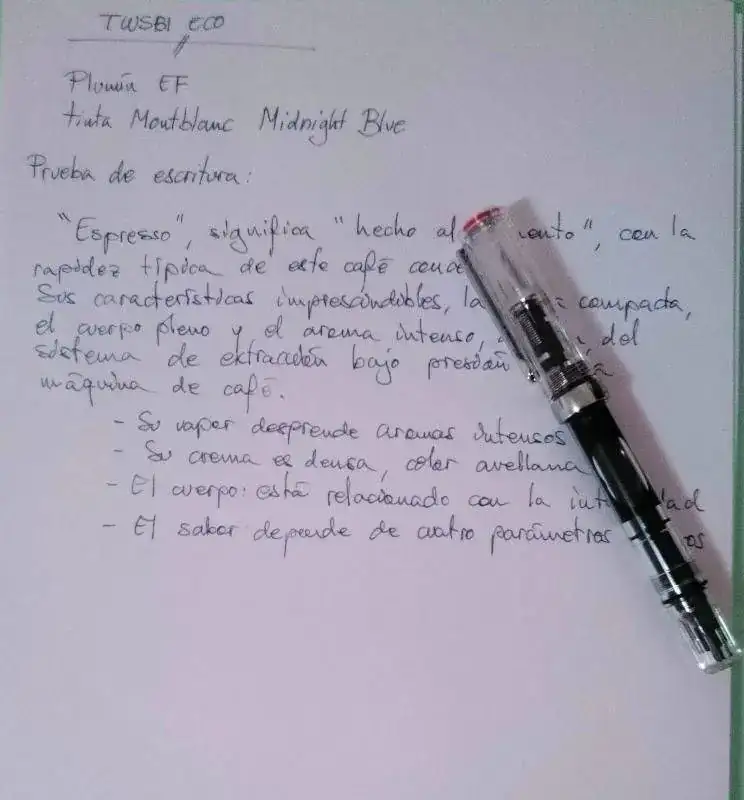 TWSBI ECO
Plumín EF
tinta Montblanc Midnight Blue
Prueba de escritura:
"Espresso", significa "hecho al ento", con la
rapidez típica de este café
Sus características imprescindibles, la compacta,
el cuerpo pleno y el aroma intenso, del
sistema de extracción bajo presión
máquina de café.
- Su vapor desprende aromas intensos
- Su crema es densa, color avellana
- El cuerpo: está relacionado con la
- El sabor depende de cuatro parámetros